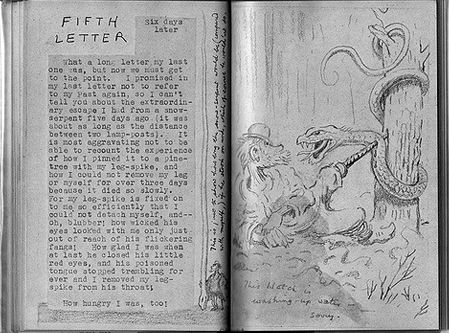 FIFTH
LETTER
Six days
later
What a long letter my last
one was, but now we must get
to the point.   I promised in
my last letter not to refer
to my past again, so I can't
tell you about the extraordin-
ary escape I had from a snow-
serpent five days ago (it was
about as long as the distance
between two lamp-posts).   It
is most aggravating not to be
able to recount the experience
of how I pinned it to a pine-
tree with my leg-spike, and
how I could not remove my leg
or myself for over three days
because it died so slowly.
For my leg-spike is fixed on
to me so efficiently that I
could not detach myself, and--
oh, blubber; how wicked his
eyes looked with me only just
out of reach of his flickering
fangs!   How glad I was when
at last he closed his little
red eyes, and his poisoned
tongue stopped trembling for
ever and I removed my leg-
spike from his throat!
How hungry I was, too!
This blotch is
washing-up water
Sorry.